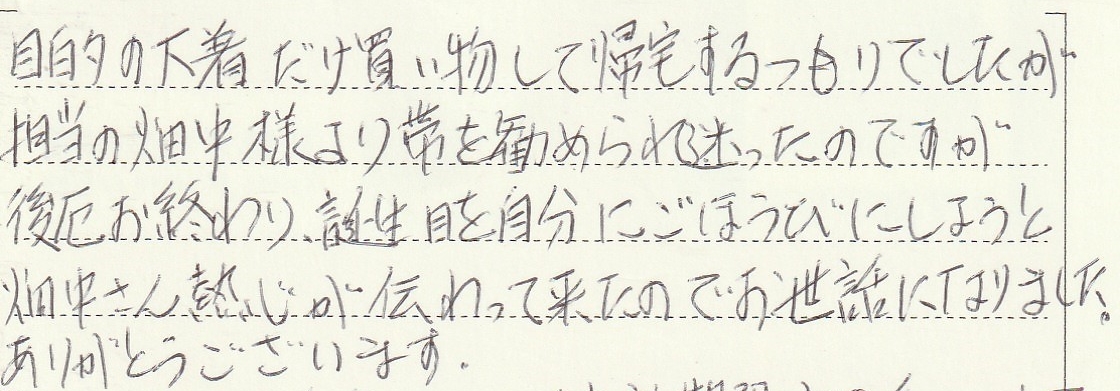 目的の下着だけ買い物して帰宅するつもりでしたが
担当の畑中様より帯を勧められ迷ったのですが
後厄お終わり、誕生日を自分にごほうびにしようと
畑中さん熱いじが伝わって来たのでお世話になりました。
ありがとうございます.